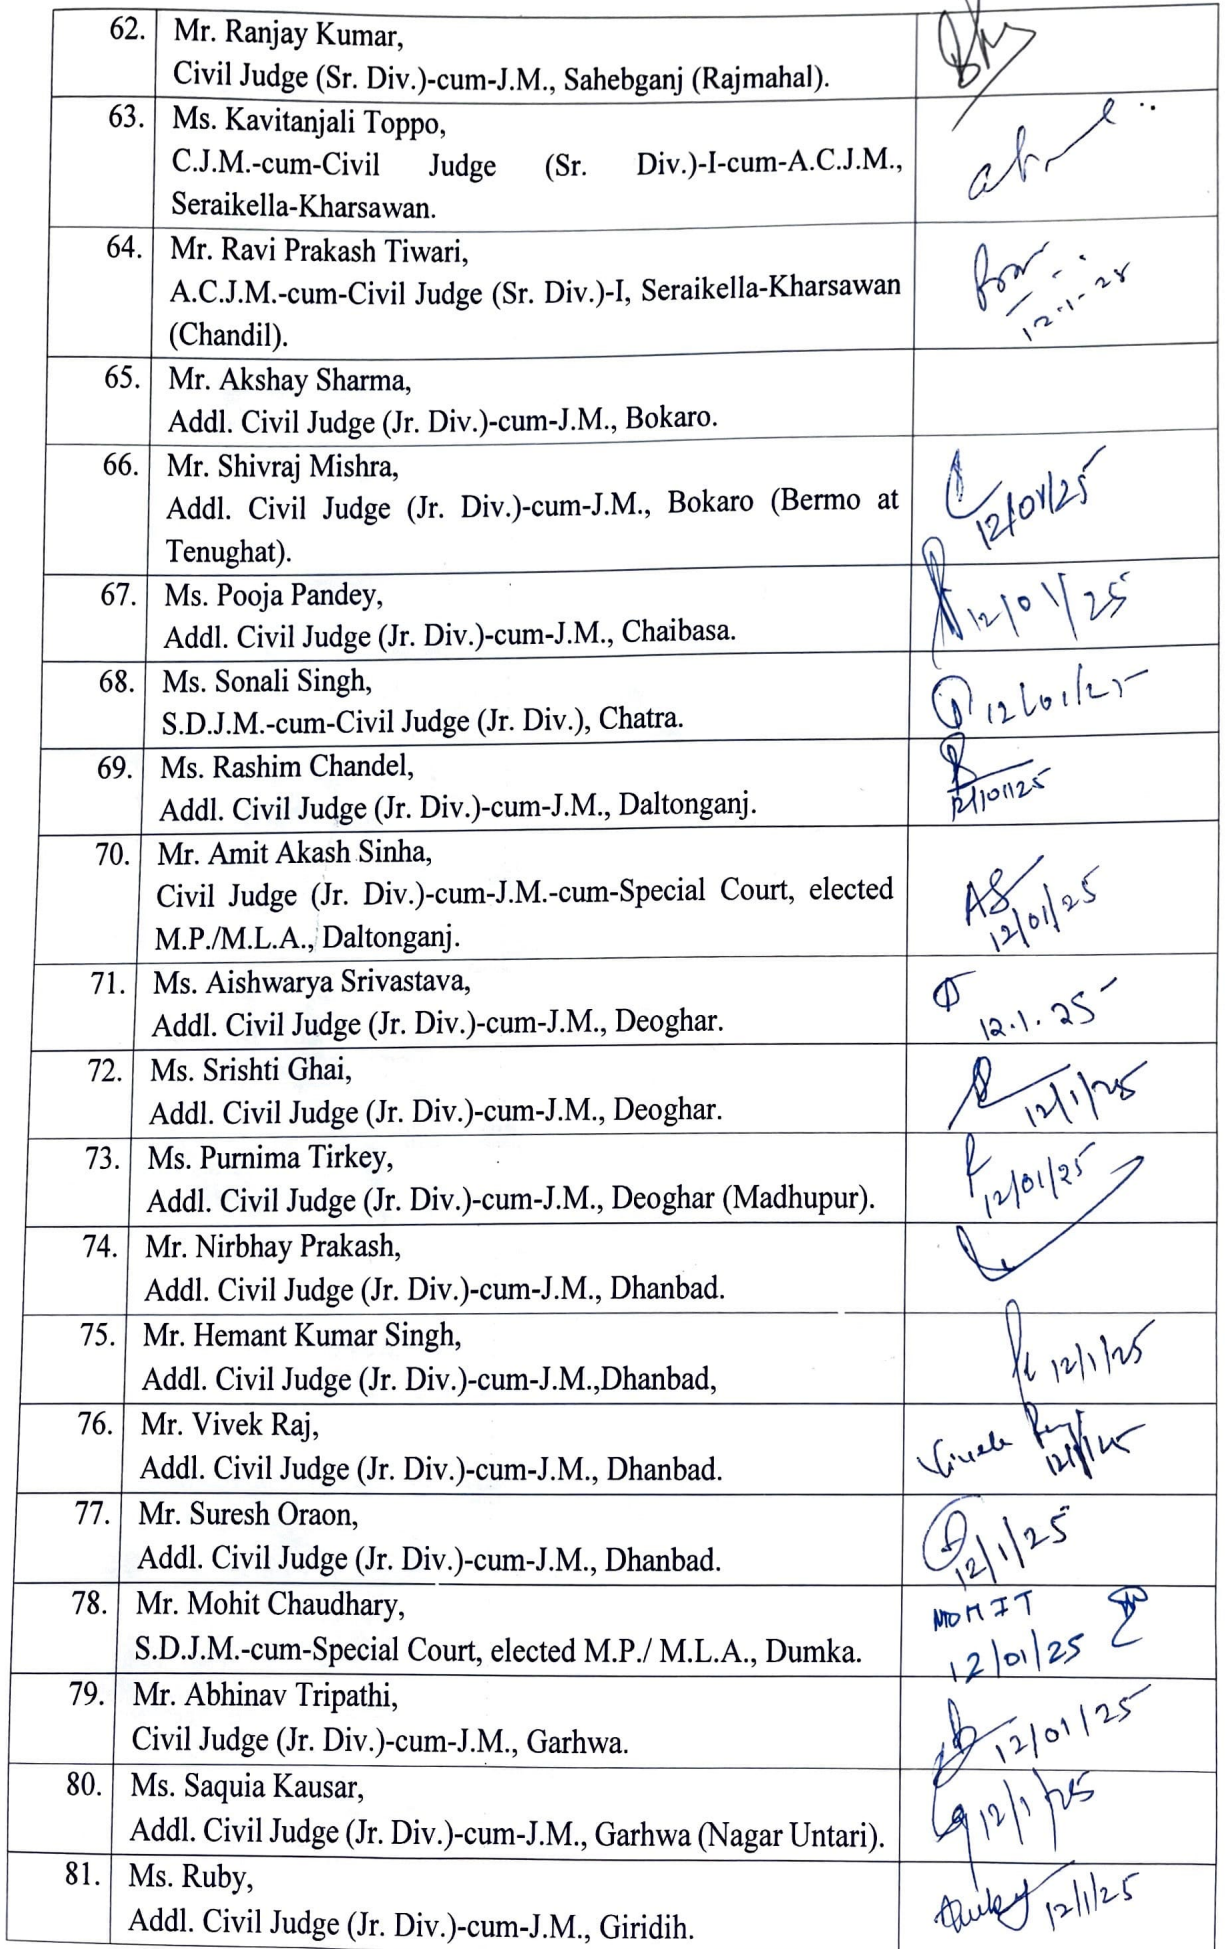 62. Mr. Ranjay Kumar,
Civil Judge (Sr. Div.)-cum-J.M., Sahebganj (Rajmahal).
63. Ms. Kavitanjali Toppo,
C.J.M.-cum-Civil Judge (Sr. Div.)-I-cum-A.C.J.M.,
Seraikella-Kharsawan.
64. Mr. Ravi Prakash Tiwari,
A.C.J.M.-cum-Civil Judge (Sr. Div.)-I, Seraikella-Kharsawan
(Chandil).
12-1-25
65. Mr. Akshay Sharma,
Addl. Civil Judge (Jr. Div.)-cum-J.M., Bokaro.
66. Mr. Shivraj Mishra,
Addl. Civil Judge (Jr. Div.)-cum-J.M., Bokaro (Bermo at
Tenughat).
12/01/25
67. Ms. Pooja Pandey,
Addl. Civil Judge (Jr. Div.)-cum-J.M., Chaibasa.
12/01/25
68. Ms. Sonali Singh,
S.D.J.M.-cum-Civil Judge (Jr. Div.), Chatra.
12/01/25
69. Ms. Rashim Chandel,
Addl. Civil Judge (Jr. Div.)-cum-J.M., Daltonganj.
12/01/25
70. Mr. Amit Akash Sinha,
Civil Judge (Jr. Div.)-cum-J.M.-cum-Special Court, elected
M.P./M.L.A., Daltonganj.
AS
12/01/25
71. Ms. Aishwarya Srivastava,
Addl. Civil Judge (Jr. Div.)-cum-J.M., Deoghar.
12.1.25
72. Ms. Srishti Ghai,
Addl. Civil Judge (Jr. Div.)-cum-J.M., Deoghar.
12/1/25
73. Ms. Purnima Tirkey,
Addl. Civil Judge (Jr. Div.)-cum-J.M., Deoghar (Madhupur).
12/01/25
74. Mr. Nirbhay Prakash,
Addl. Civil Judge (Jr. Div.)-cum-J.M., Dhanbad.
75. Mr. Hemant Kumar Singh,
Addl. Civil Judge (Jr. Div.)-cum-J.M.,Dhanbad,
12/1/25
76. Mr. Vivek Raj,
Addl. Civil Judge (Jr. Div.)-cum-J.M., Dhanbad.
Vivek Raj
12/1/25
77. Mr. Suresh Oraon,
Addl. Civil Judge (Jr. Div.)-cum-J.M., Dhanbad.
12/1/25
78. Mr. Mohit Chaudhary,
S.D.J.M.-cum-Special Court, elected M.P./ M.L.A., Dumka.
MOHIT
12/01/25
79. Mr. Abhinav Tripathi,
Civil Judge (Jr. Div.)-cum-J.M., Garhwa.
12/01/25
80. Ms. Saquia Kausar,
Addl. Civil Judge (Jr. Div.)-cum-J.M., Garhwa (Nagar Untari).
12/1/25
81. Ms. Ruby,
Addl. Civil Judge (Jr. Div.)-cum-J.M., Giridih.
Ruby 12/1/25